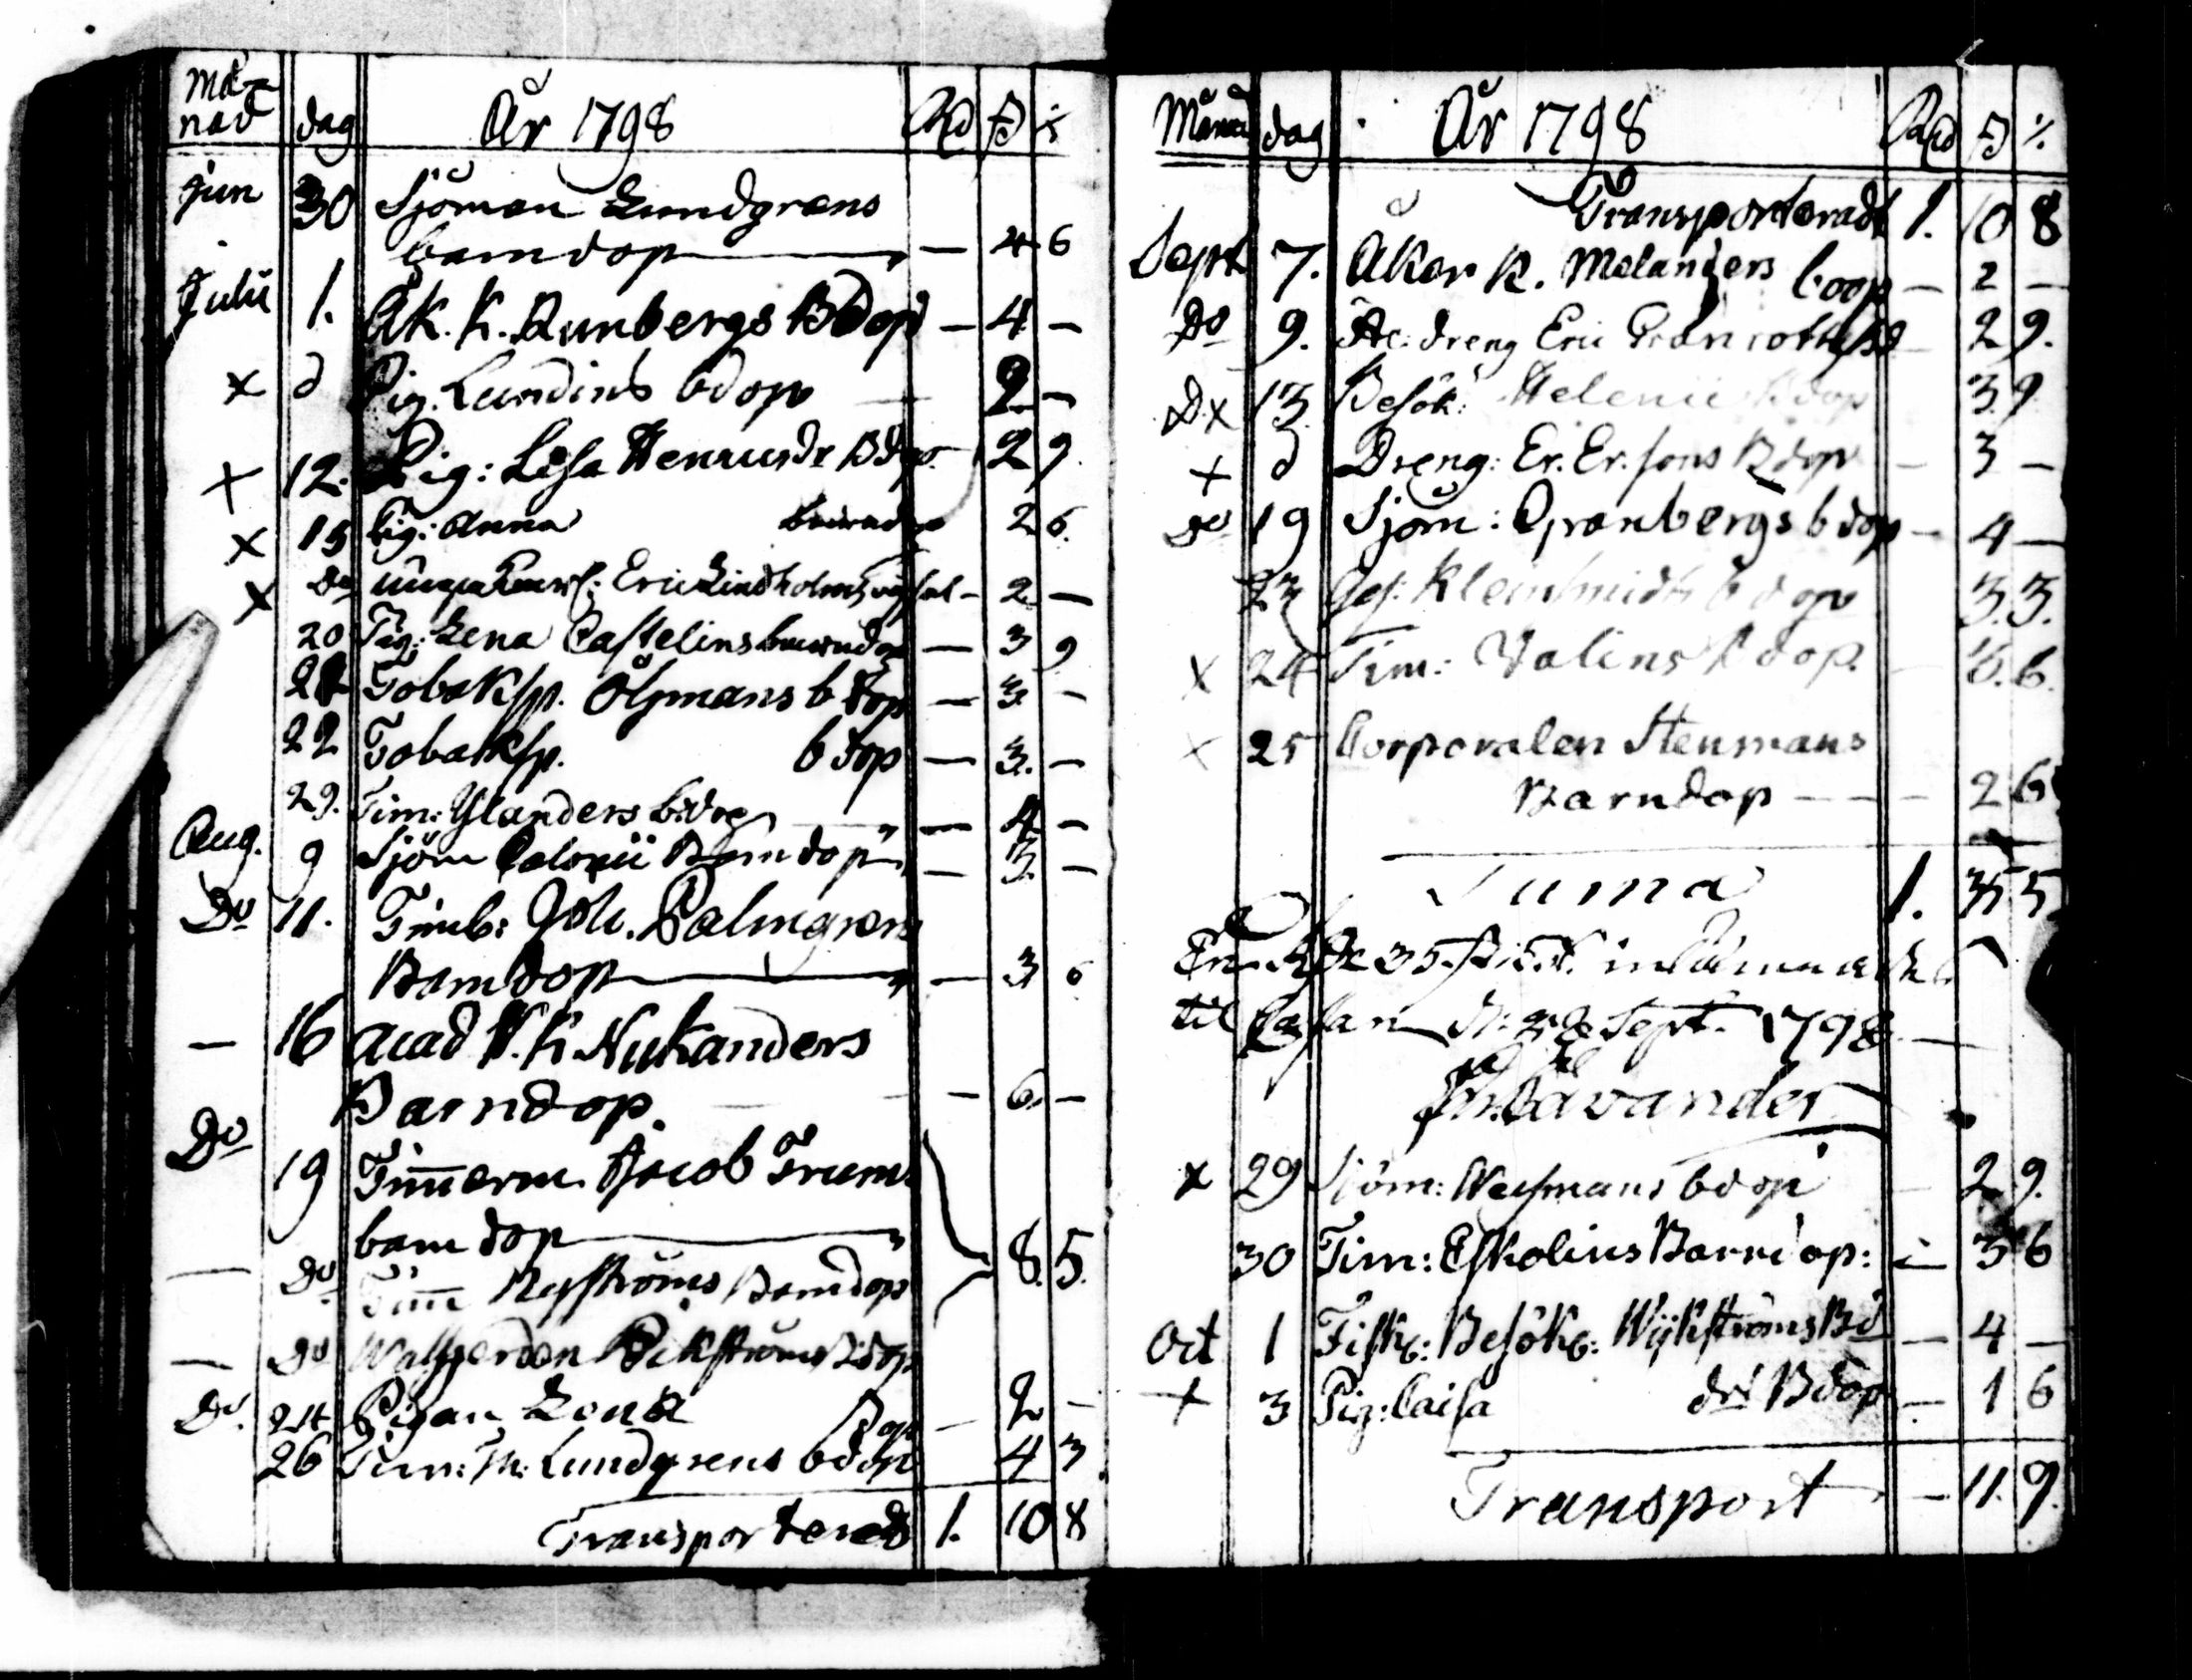 Må-
nad dag År 1798 Rd ß
jun 30 Sjöman Lundgrens
barndop — 4 6
Julii 1. Åk. K. Runbergs Bdop — 4 —
x d Pig. Lundins bdop — 2 —
x 12. Pig: Lisa Bdop 2 9.
x 15 Pig: Anna barndop 2 6.
x Do Eric Lindholms — 2 —
20 Pig: Lena Castelins barndop — 3 9
Tobaksp. Öhmans bdop — 3 —
22 Tobaksp. bdop — 3. —
29. Tim: Ylanders bdop — 4 —
Aug. 9 Sjöm Barndop — 3. —
Do 11. Timb: Joh. Palmgrens
Barndop — 3 6
— 16 acad V. K. Nykanders
Barndop. — 6 —
Do 19 Timmerm. Jacob
barndop
— Do Tim Nyströms Barndop 8. 5.
— Do Bdop
Do. 24 Pigan Lena Bop — 2 —
26 Tim: M: Lundgrens bdop 4 3
Transporteras 1. 10 8
Månad dag År 1798 Rd ß
Transporteradt 1. 10 8
Sept 7. Åker K. Melanders bdop — 2 —
Do 9. dreng Eric 2 9.
Do x 13 Besök: Helenii Bdop 3. 9
x d Dreng: Er. Er.sons Bdop — 3 —
Do 19 Sjöm: Granbergs bdop — 4 —
23 Ges: Kleinsmidts bdop 3. 3.
x 24 Tim: Valins bdop. 6.
x 25 Corporalen Stenmans
Barndop — 2 6
Suma 1. 35 5
En R 35 ß 5
til Cassan d: 28 Sept. 1798. —
Lavander
x 29 Sjöm: Wessmans bdop 2 9.
30 Tim: Eskolins Barndop: — 3 6
Oct 1 Fisk: Besök: Wijkströms Bd — 4 —
x 3 Pig: Caisa Bdop — 1 6
Transport — 11. 9.